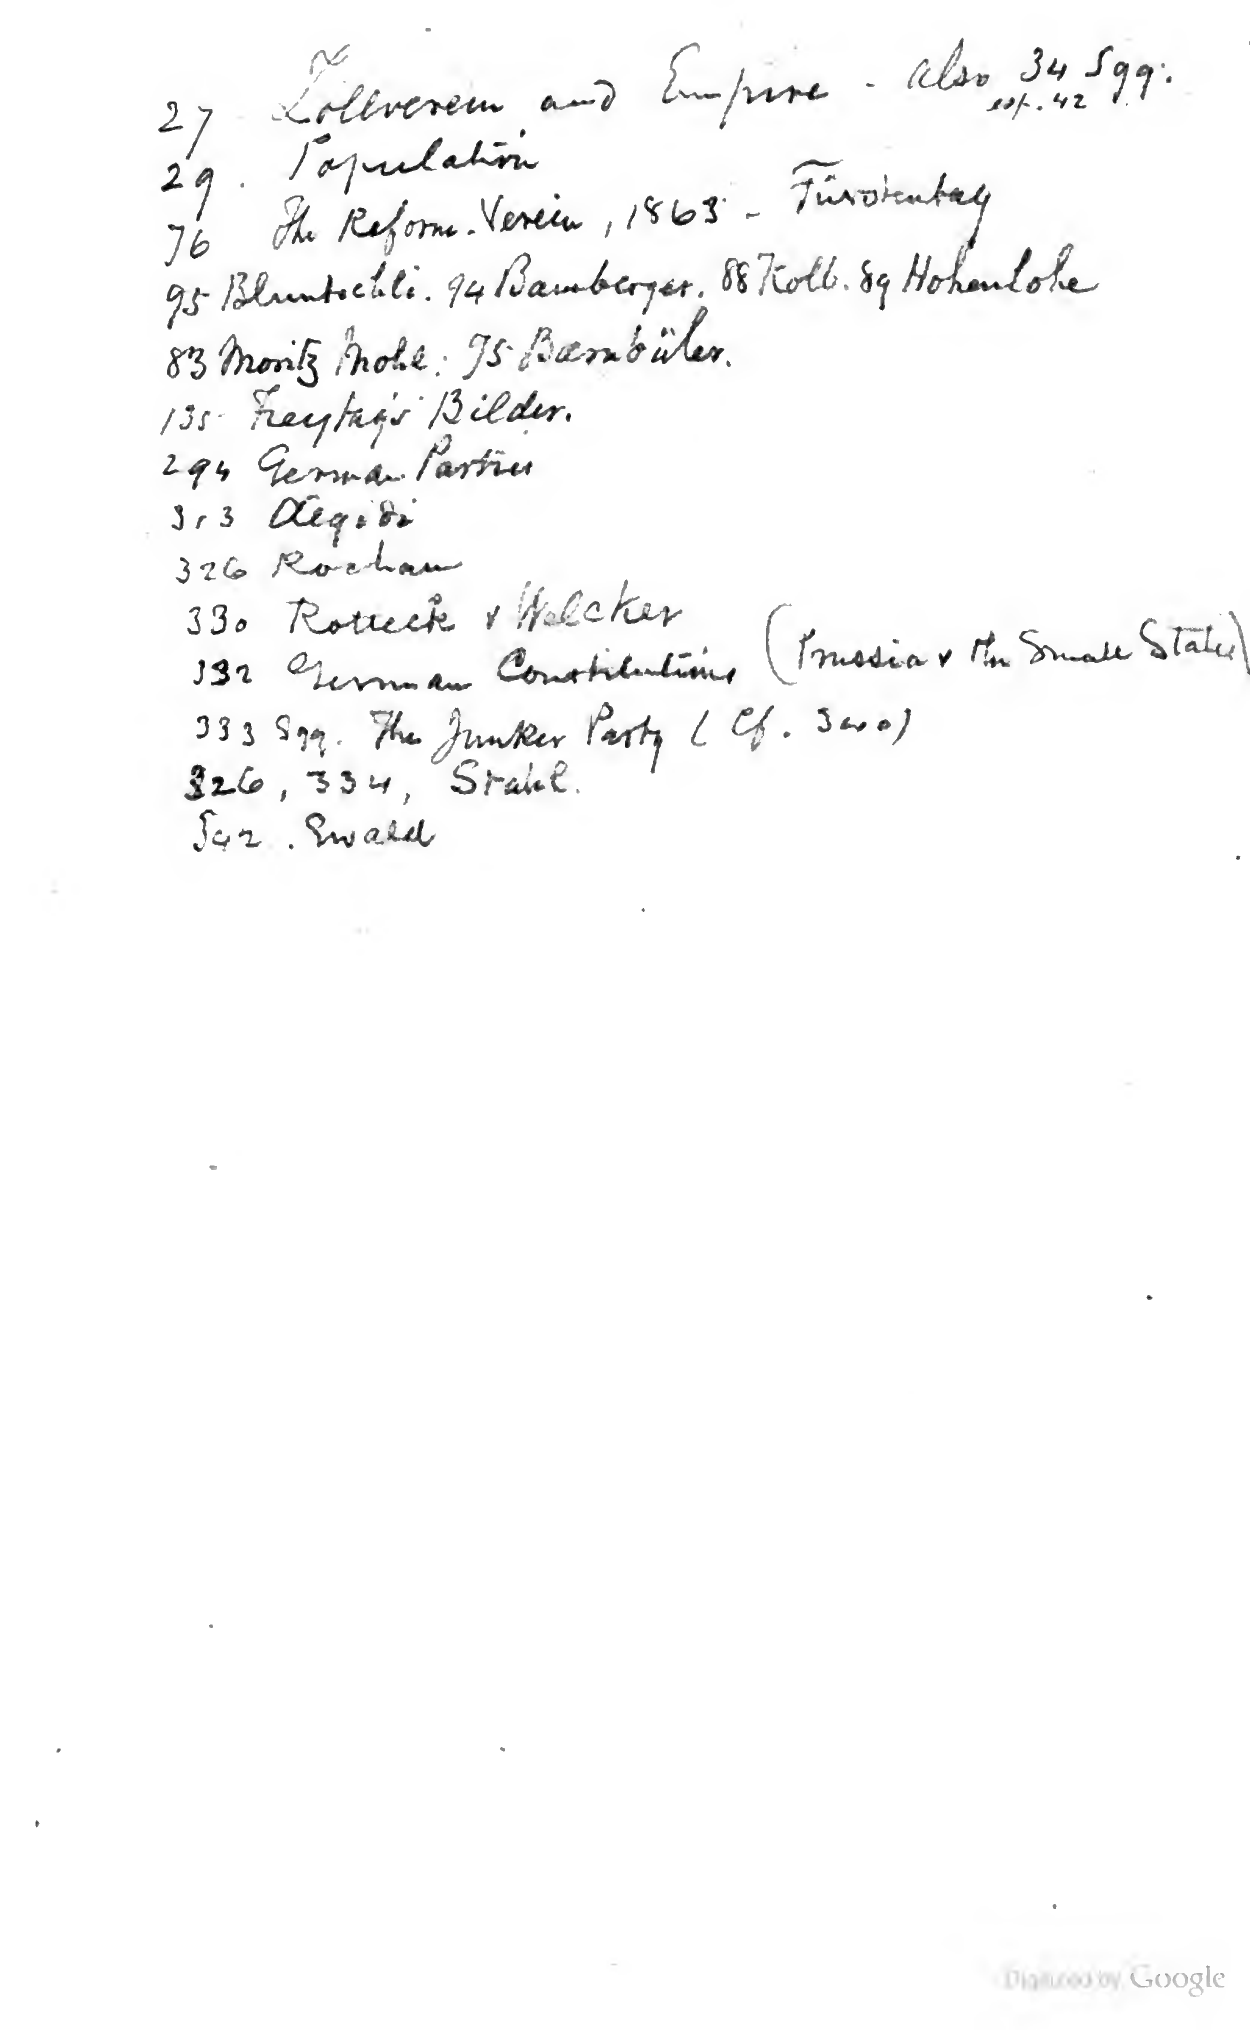 27 Zollverein and Empire - also 34 Sqq.
esp. 42
29. Population
76 The Reform-Verein, 1863 - Fürstentag
95 Bluntschli. 94 Bamberger. 88 Kolb. 89 Hohenlohe
83 Moritz Mohl. 95 Barnbüler.
135 Freytag's Bilder.
294 German Parties
313 Ægidi
326 Rochau
330 Rotteck & Welcker
332 German Constitutions (Prussia & the Small States)
333 Sqq. The Junker Party (Cf. 340)
326, 334, Stahl.
542. Ewald
Digitized by Google